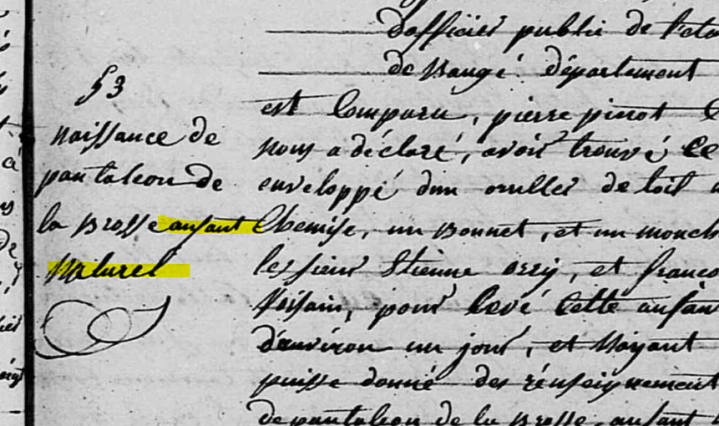 d'officier public de l'éta
de Baugé département
53
est Comparu, pierre pinot
naissance de
nous a déclaré, avoir trouvé Ce
pantaleon de
enveloppé dun de toil
la Brosse anfant
Chemise, un Bonnet, et un mouch
Naturel
les sieur Etienne et franco
Voisain, pour Levé Cette anfan
d'auviron un jour, et Nayant
puisse donné des renseignement
de pantaleon de la Brosse, anfant